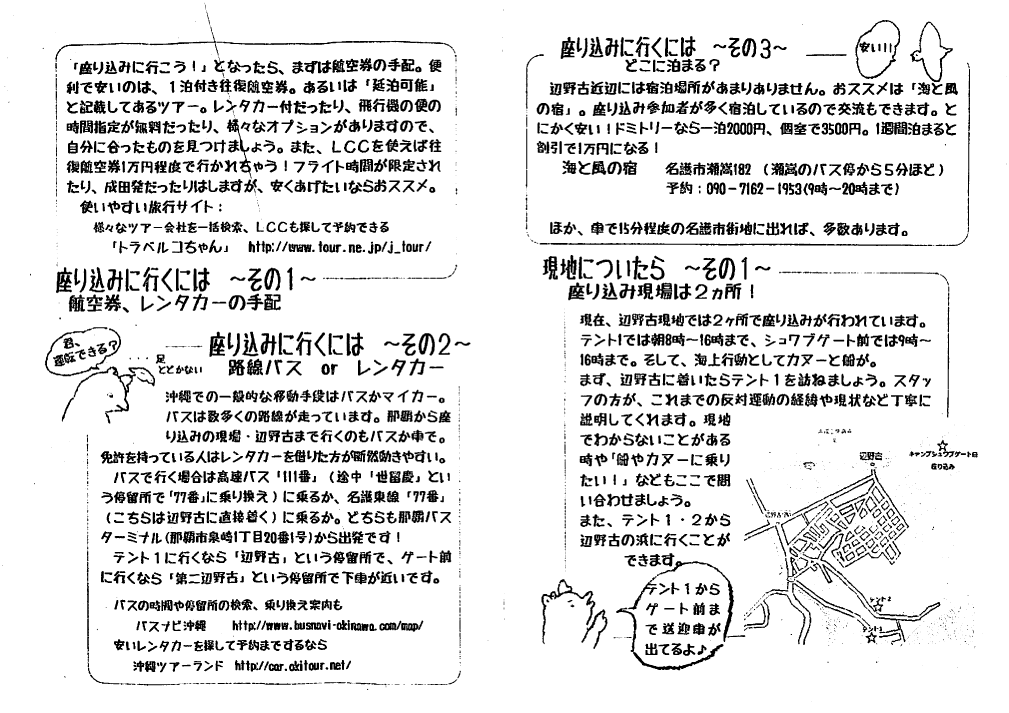 「座り込みに行こう！」となったら、まずは航空券の手配。便
利で安いのは、１泊付き往復航空券。あるいは「延泊可能」
と記載してあるツアー。レンタカー付だったり、飛行機の便の
時間指定が無料だったり、様々なオプションがありますので、
自分に合ったものを見つけましょう。また、ＬＣＣを使えば往
復航空券1万円程度で行かれちゃう！フライト時間が限定され
たり、成田発だったりはしますが、安くあげたいならおススメ。
使いやすい旅行サイト：
様々なツアー会社を一括検索、ＬＣＣも探して予約できる
「トラベルコちゃん」　http://www.tour.ne.jp/j_tour/
座り込みに行くには　～その１～
航空券、レンタカーの手配
君、
運転できる？
・・・足
とどかない
座り込みに行くには　～その２～
路線バス　or　レンタカー
沖縄での一般的な移動手段はバスかマイカー。
バスは数多くの路線が走っています。那覇から座
り込みの現場・辺野古まで行くのもバスか車で。
免許を持っている人はレンタカーを借りた方が断然動きやすい。
バスで行く場合は高速バス「111番」（途中「世冨慶」とい
う停留所で「77番」に乗り換え）に乗るか、名護東線「77番」
（こちらは辺野古に直接着く）に乗るか。どちらも那覇バス
ターミナル(那覇市泉崎1丁目20番1号)から出発です！
テント１に行くなら「辺野古」という停留所で、ゲート前
に行くなら「第二辺野古」という停留所で下車が近いです。
バスの時間や停留所の検索、乗り換え案内も
バスナビ沖縄　http://www.busnavi-okinawa.com/map/
安いレンタカーを探して予約までするなら
沖縄ツアーランド　http://car.okitour.net/
座り込みに行くには　～その３～
どこに泊まる？
安い!!
辺野古近辺には宿泊場所があまりありません。おススメは「海と風
の宿」。座り込み参加者が多く宿泊しているので交流もできます。と
にかく安い！ドミトリーなら一泊2000円、個室で3500円。1週間泊まると
割引で1万円になる！
海と風の宿　名護市瀬嵩182　（瀬嵩のバス停から５分ほど）
予約：090-7162-1953(9時～20時まで)
ほか、車で15分程度の名護市街地に出れば、多数あります。
現地についたら　～その１～
座り込み現場は２ヵ所！
現在、辺野古現地では２ヶ所で座り込みが行われています。
テント1では朝8時～16時まで、シュワブゲート前では9時～
16時まで。そして、海上行動としてカヌーと船が。
まず、辺野古に着いたらテント１を訪ねましょう。スタッ
フの方が、これまでの反対運動の経緯や現状など丁寧に
説明してくれます。現地
でわからないことがある
時や「船やカヌーに乗り
たい！」などもここで問
い合わせましょう。
また、テント１・２から
辺野古の浜に行くことが
できます。
テント１から
ゲート前ま
で送迎車が
出てるよ♪
辺野古
キャンプシュワブゲート前
座り込み
テント2
テント1